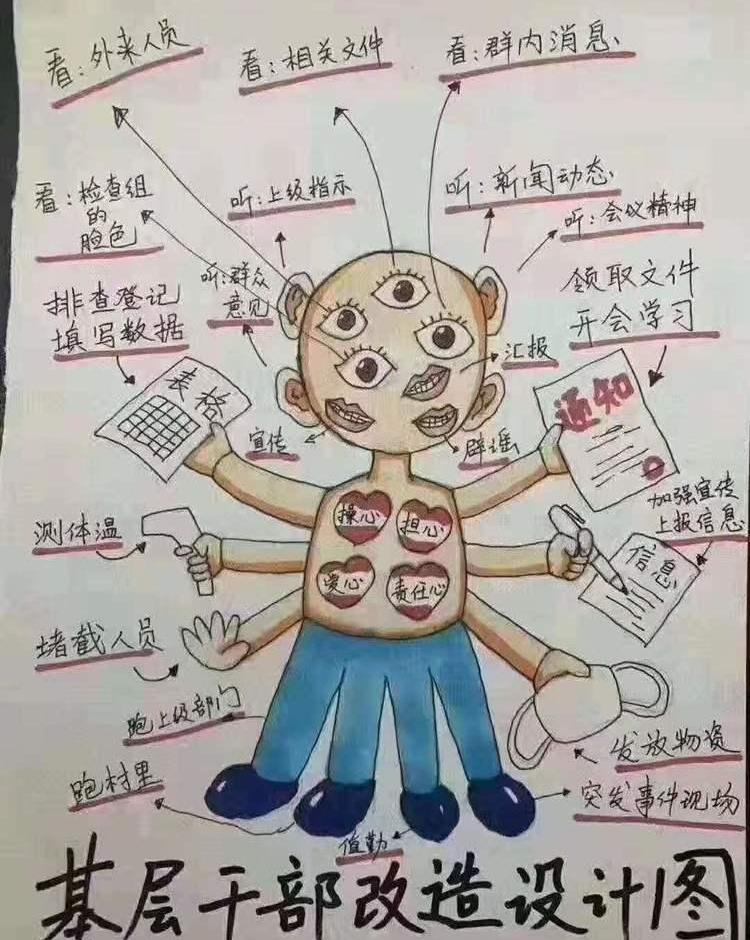 看:外来人员
看:相关文件
看:群内消息
看:检查组
的
脸色
听:上级指示
听:新闻动态
听:会议精神
听:群众
意见
排查登记
填写数据
领取文件
开会学习
表格
汇报
通知
宣传
辟谣
测体温
操心
担心
爱心
责任心
加强宣传
上报信息
信息
堵截人员
跑上级部门
跑村里
值勤
发放物资
突发事件现场
基层干部改造设计图